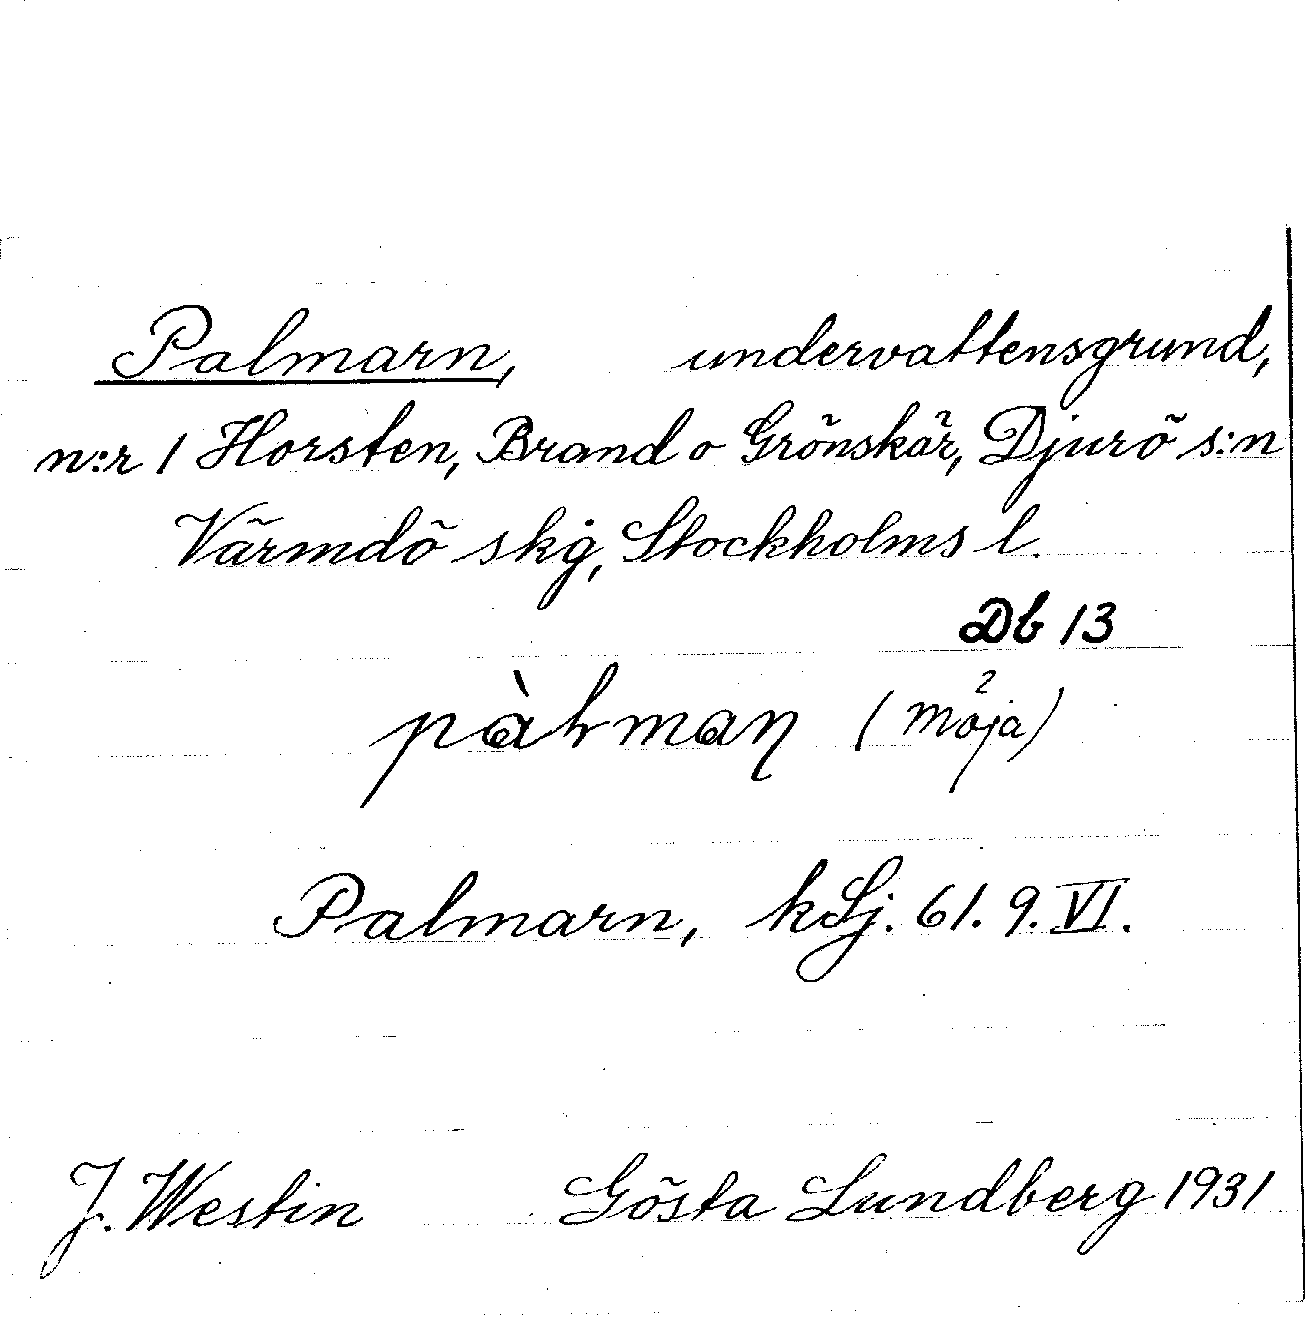 Palmarn, undervattensgrund,
n:r 1 Horsten, Brand o Grönskär, Djurö s:n
Värmdö skg, Stockholms l.
Db 13
pàlman (möja)
Palmarn, kSj. 61. 9. VI.
J. Westin Gösta Lundberg 1931